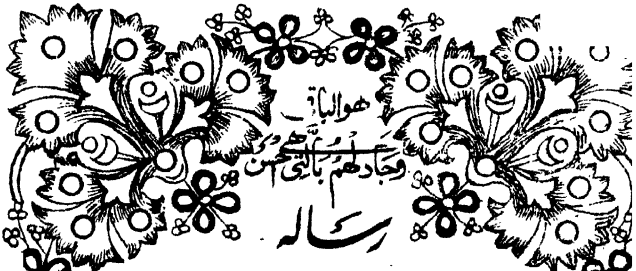 هوالباقی
وَجَادِلْهُمْ بِالَّتِی هِیَ اَحْسَنُ
رساله